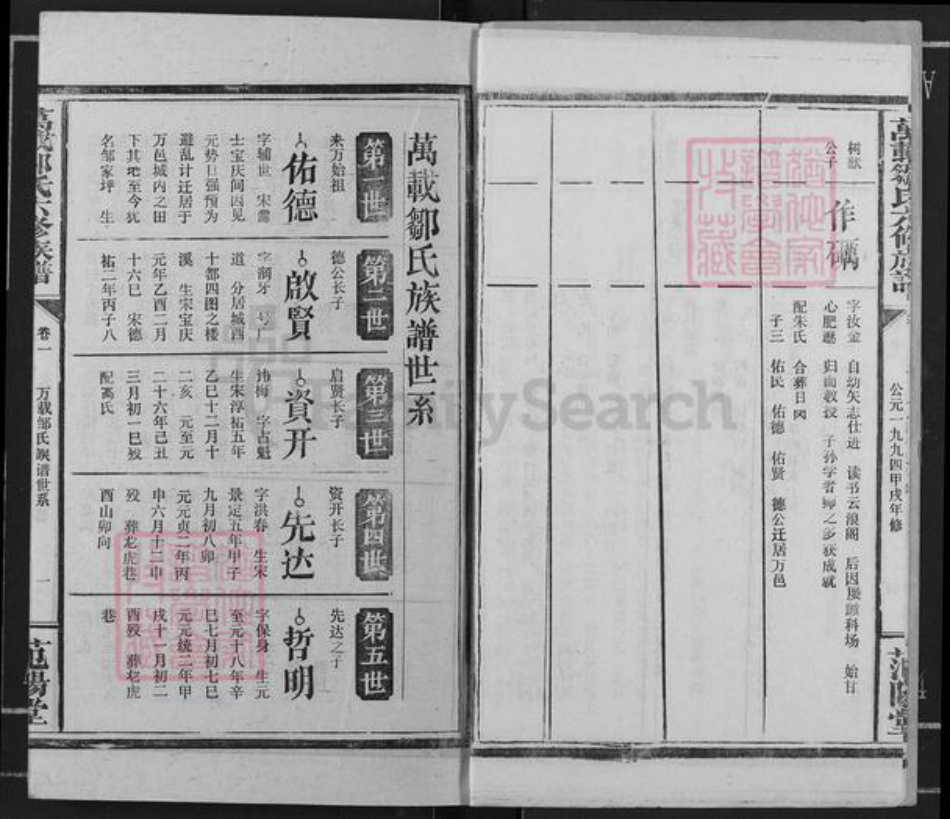 萬載鄒氏六修族譜
公元一九九四甲戌年修
范陽堂
树猷
公子
作礪
字汝金 自幼矢志仕进 读书云浪阁 后因屡踬科场 始甘
心肥遯 归而教授 子孙学者师之多获成就
配朱氏 合葬日岡
子三 佑民 佑德 佑贤 德公迁居万邑
萬載鄒氏族譜世系
第一世
来万始祖
佑德
字辅世 宋儒
士宝庆间因见
元势日强预为
避乱计迁居于
万邑城内之田
下其地至今犹
名邹家坪 生
第二世
德公长子
啟賢
字润牙 号仁
道 分居城西
十都四图之楼
溪 生宋宝庆
元年乙酉二月
十六巳 宋德
祐二年丙子八
第三世
启贤长子
資开
讳梅 字占魁
生宋淳祐五年
乙巳十二月十
二亥 元至元
二十六年己丑
三月初一巳殁
配高氏
第四世
资开长子
先达
字洪春 生宋
景定五年甲子
九月初八卯
元元贞二年丙
申六月十二申
殁 葬龙虎巷
酉山卯向
第五世
先达之子
哲明
字保身 生元
至元十八年辛
巳七月初七巳
元元统二年甲
戌十一月初二
酉殁 葬龙虎
巷
萬載鄒氏六修族譜
卷一
万载邹氏族谱世系
一
范陽堂
FamilySearch